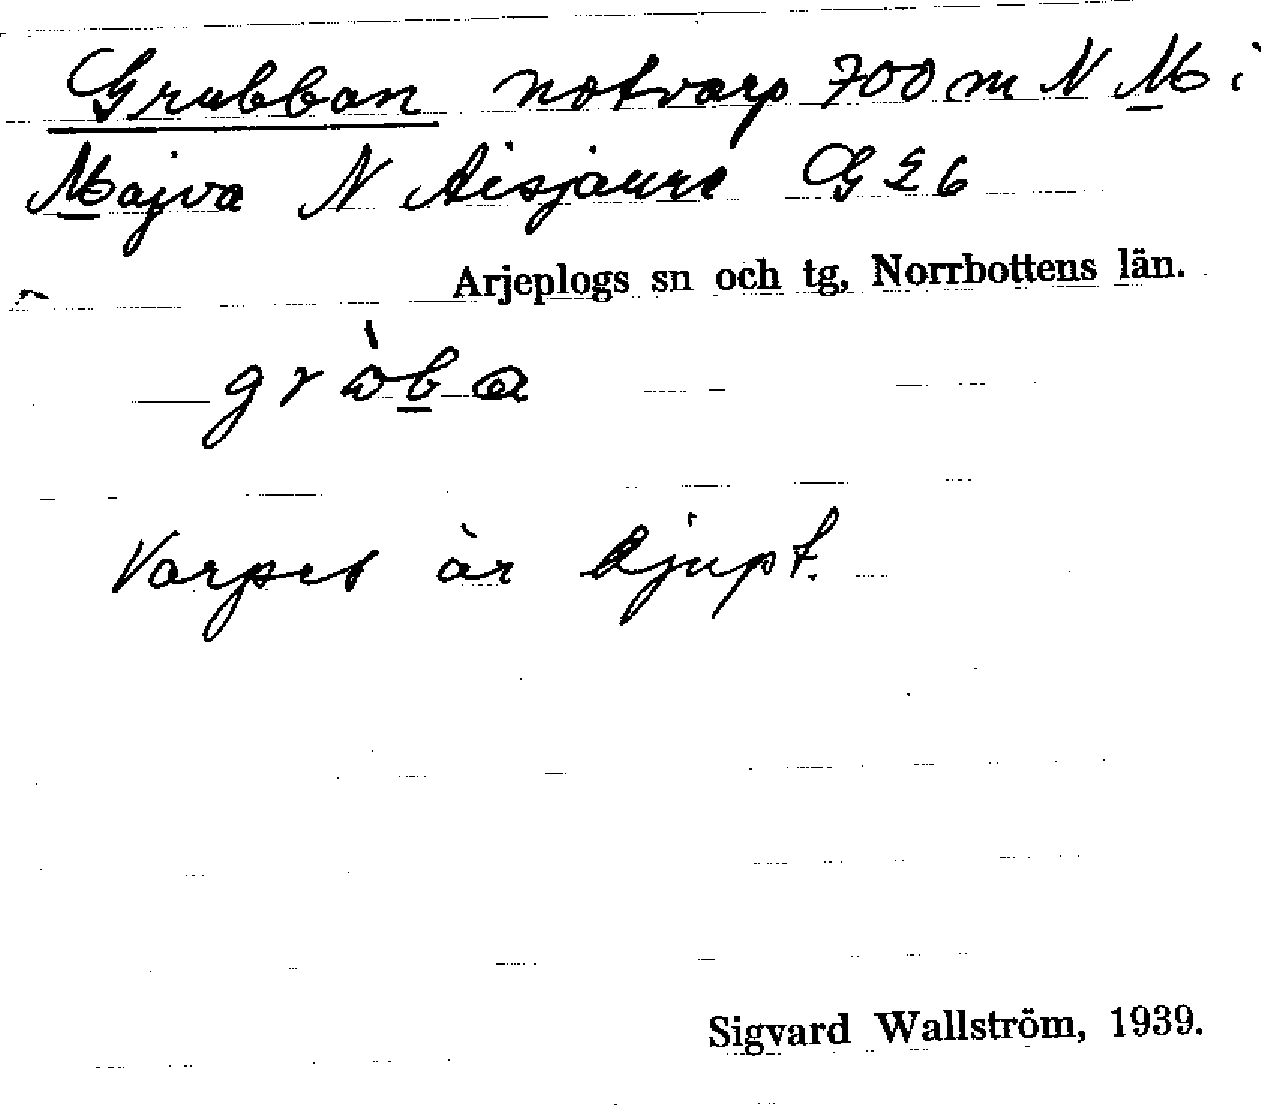 Grubban notvarp 700 m N M i
Majva N Aisjaure G26
Arjeplogs sn och tg, Norrbottens län.
Varpet är djupt.
Sigvard Wallström, 1939.